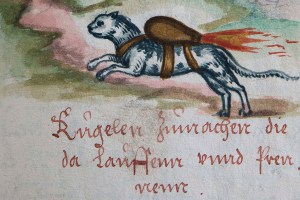 Kugelen zumachen die
da lauffenn vnnd Pren
nenn.